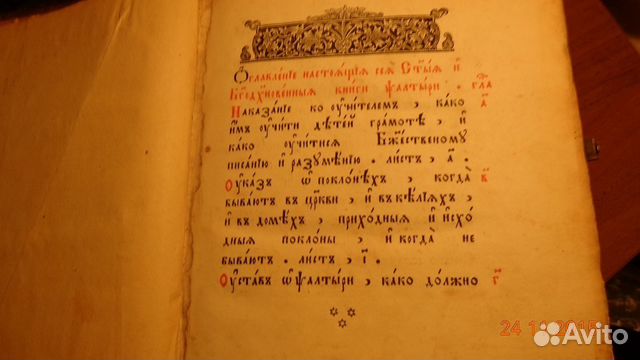 Ѻ҆главле́нїе настоѧ́щїѧ сеѧ̀ Ст҃ы́ѧ и҆
Бг҃одх҃нове́нныѧ кни́ги ѱалты́ри. гла
Наказа́нїе ко ᲂу҆чи́телемъ, ка́ко а҃
и҆̀мъ ᲂу҆чи́ти дѣте́й гра́мотѣ, и҆
ка́ко ᲂу҆чи́тисѧ Бж҃е́ственому
писа́нїю и҆ разꙋмѣ́нїю. ли́стъ, а҃.
Оу҆ка́зъ ѡ҆ покло́нѣхъ, когда̀ в҃
быва́ютъ въ цр҃кви, и҆ въ ке́лїѧхъ,
и҆ въ домѣ́хъ, прихо́дныѧ и҆ и҆схо́
дныѧ покло́ны, и҆ когда̀ не
быва́ютъ. ли́стъ, і҃.
Оу҆ста́въ ѡ҆ ѱалты́ри, ка́ко до́лжно г҃
Avito